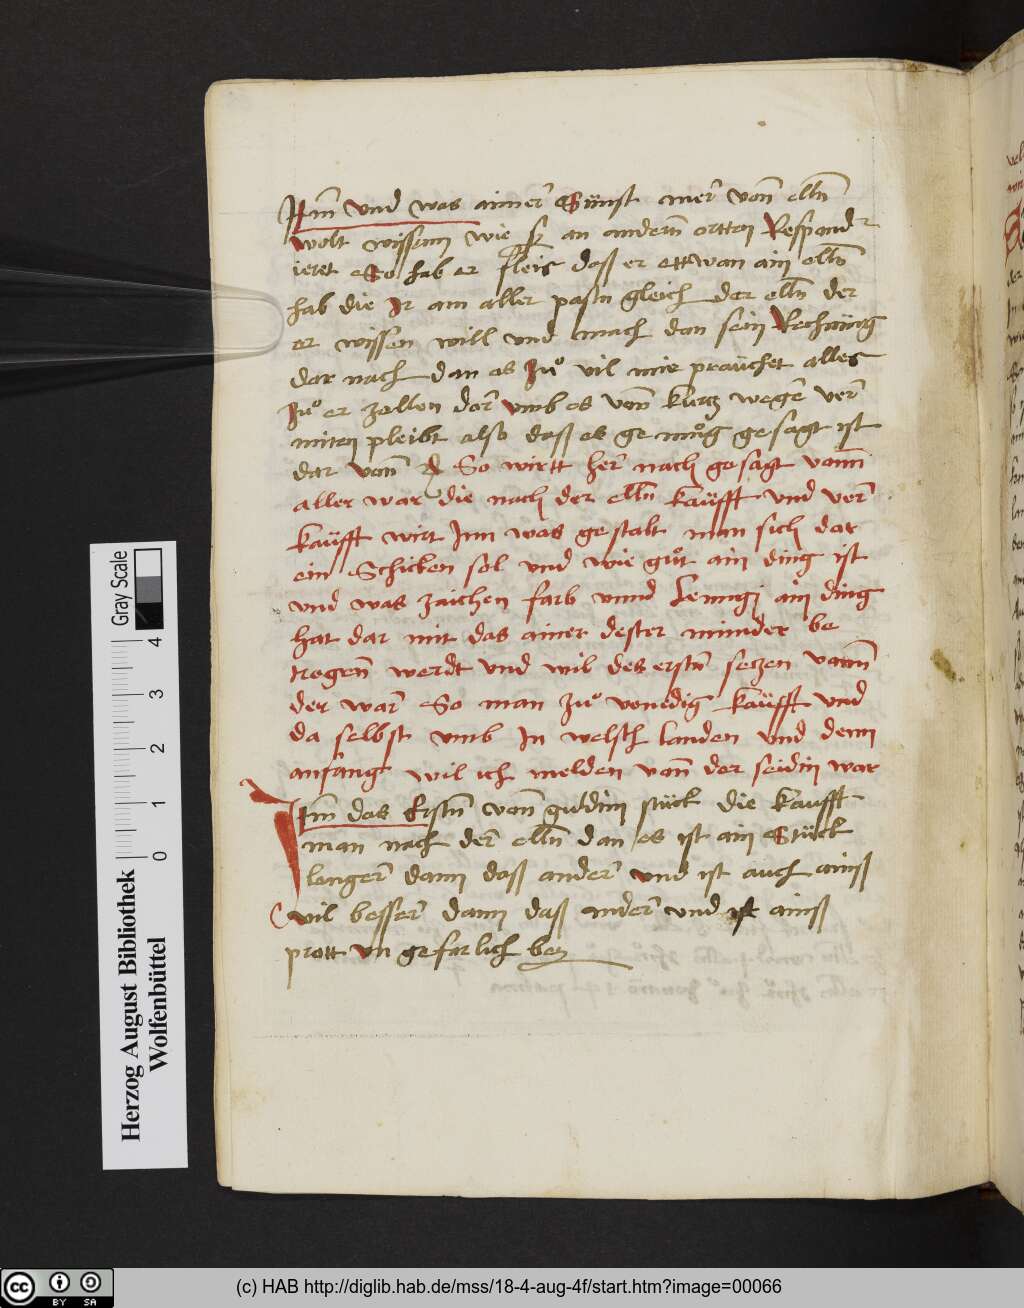 Itm̄ vnd was ainner Sünst mer von̄ elln̄
wolt wissenn wie sy an andern̄ ortten Respond
ieret So hab er fleis dass er ettwan ain elln̄
hab die Ir am aller pastn gleich der elln̄ der
er wissen will vnd mach dan sein Rechnüng
dar nach dan es Zuͦ vil mie praüchet alles
Zuͦ er zellen dar vmb es von̄ kurtz wegen ver
miten pleibt also dass es ge nuͦg gesagt ist
dar von̄ So wirtt her nach gesagt vonn̄
aller war die nach der elln̄ kaüfft vnd ver
kaüfft wirt Inn was gestalt man sich dar
ein Schicken sol vnd wie guͦt ain ding ist
vnd was zaichen farb vnnd Lenngi ain ding
hat dar mit das ainer dester minder be
trogenn̄ werdt vnd wil des erstn̄ setzen vonn̄
der war So man zuͦ venedig kaüfft vnd
da selbst vmb In welsch landen vnd denn
anfang wil ich melden von̄ der seidin war
Itm̄ das Erstn̄ von̄ guldin stück die kaufft
man nach der elln̄ dan es ist ain Stück
lenger dann dass ander vnd ist auch ainss
vil besser dann dass ander vnd ist ainss
prott vn gefarlich bey
Herzog August Bibliothek
Wolfenbüttel
Gray Scale
0 1 2 3 4
cc BY SA
(c) HAB http://diglib.hab.de/mss/18-4-aug-4f/start.htm?image=00066